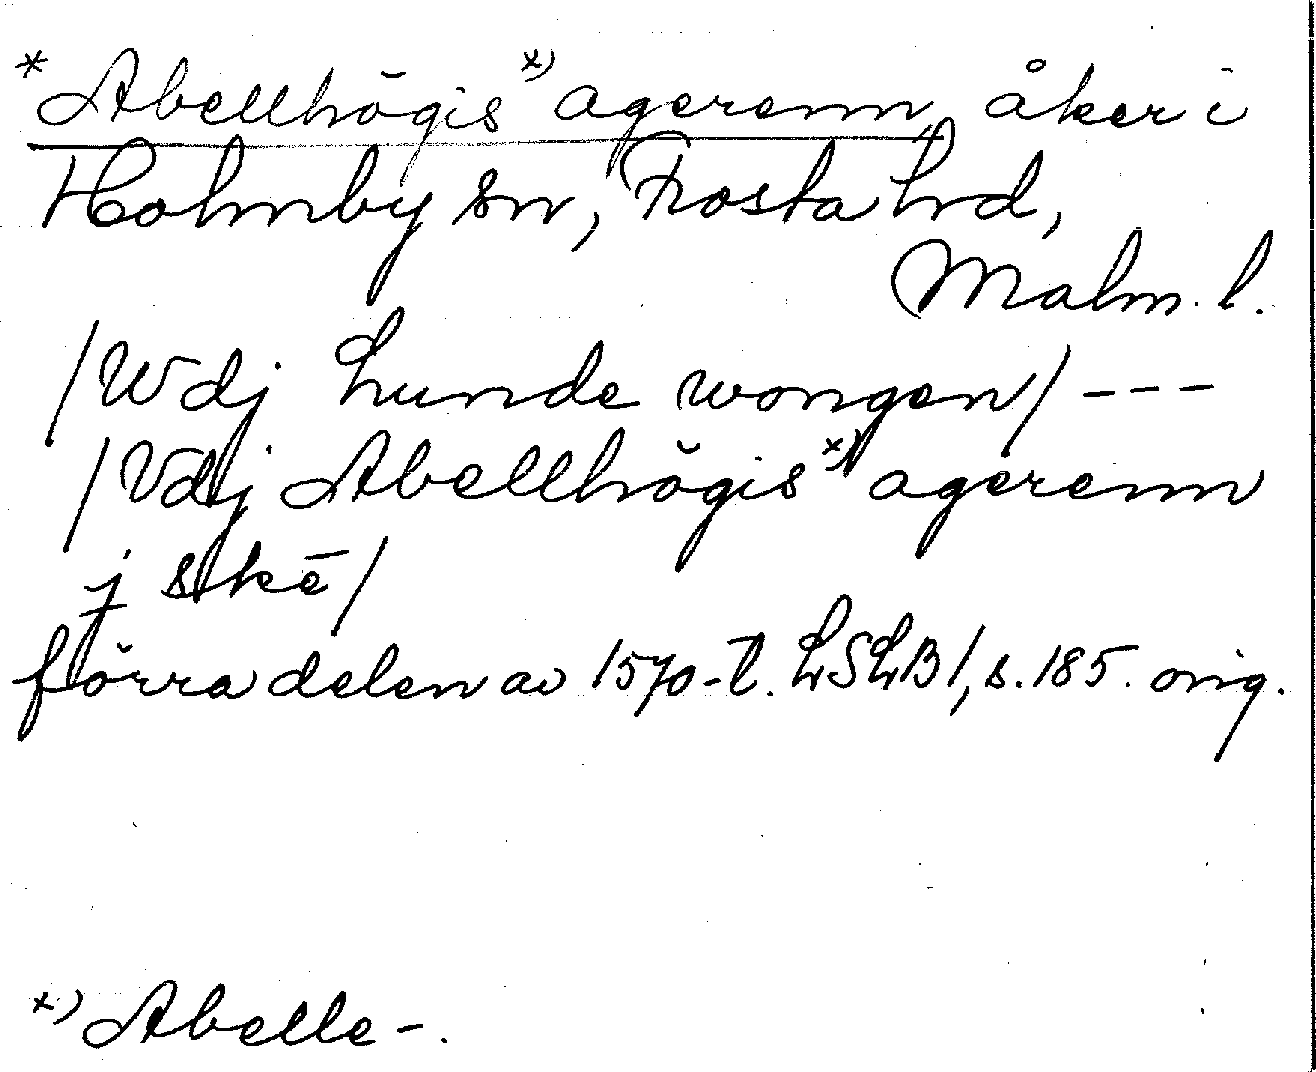 *Abellhŏgis x) agerenn, åker i
Holmby sn, Frosta hrd,
Malm. l.
/Wdj hunde wongen/ - - -
/Vdj Abellhŏgis x) agerenn
j skē/
förra delen av 1570-t. LSLB 1, s. 185. orig.
x) Abelle-.